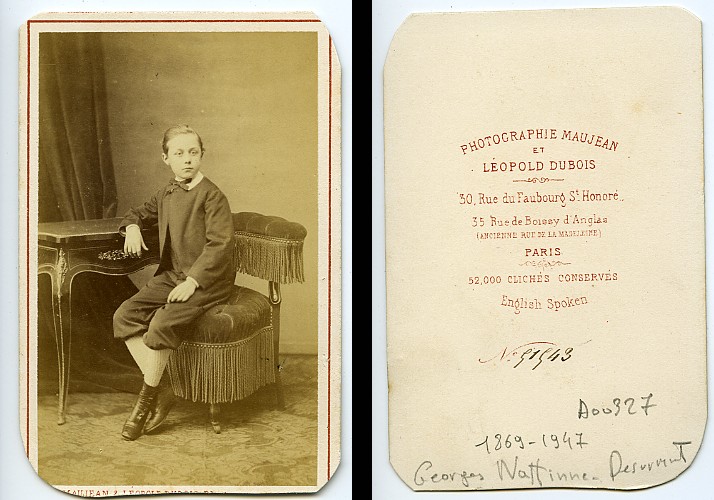 MAUJEAN & LÉOPOLD DUBOIS
PHOTOGRAPHIE MAUJEAN
ET
LÉOPOLD DUBOIS
30, Rue du Faubourg St. Honoré.
35 Rue de Boissy d'Anglas
(ANCIENNE RUE DE LA MADELEINE)
PARIS
52,000 CLICHÉS CONSERVÉS
English Spoken
No 91943
A00327
1869-1947
Georges